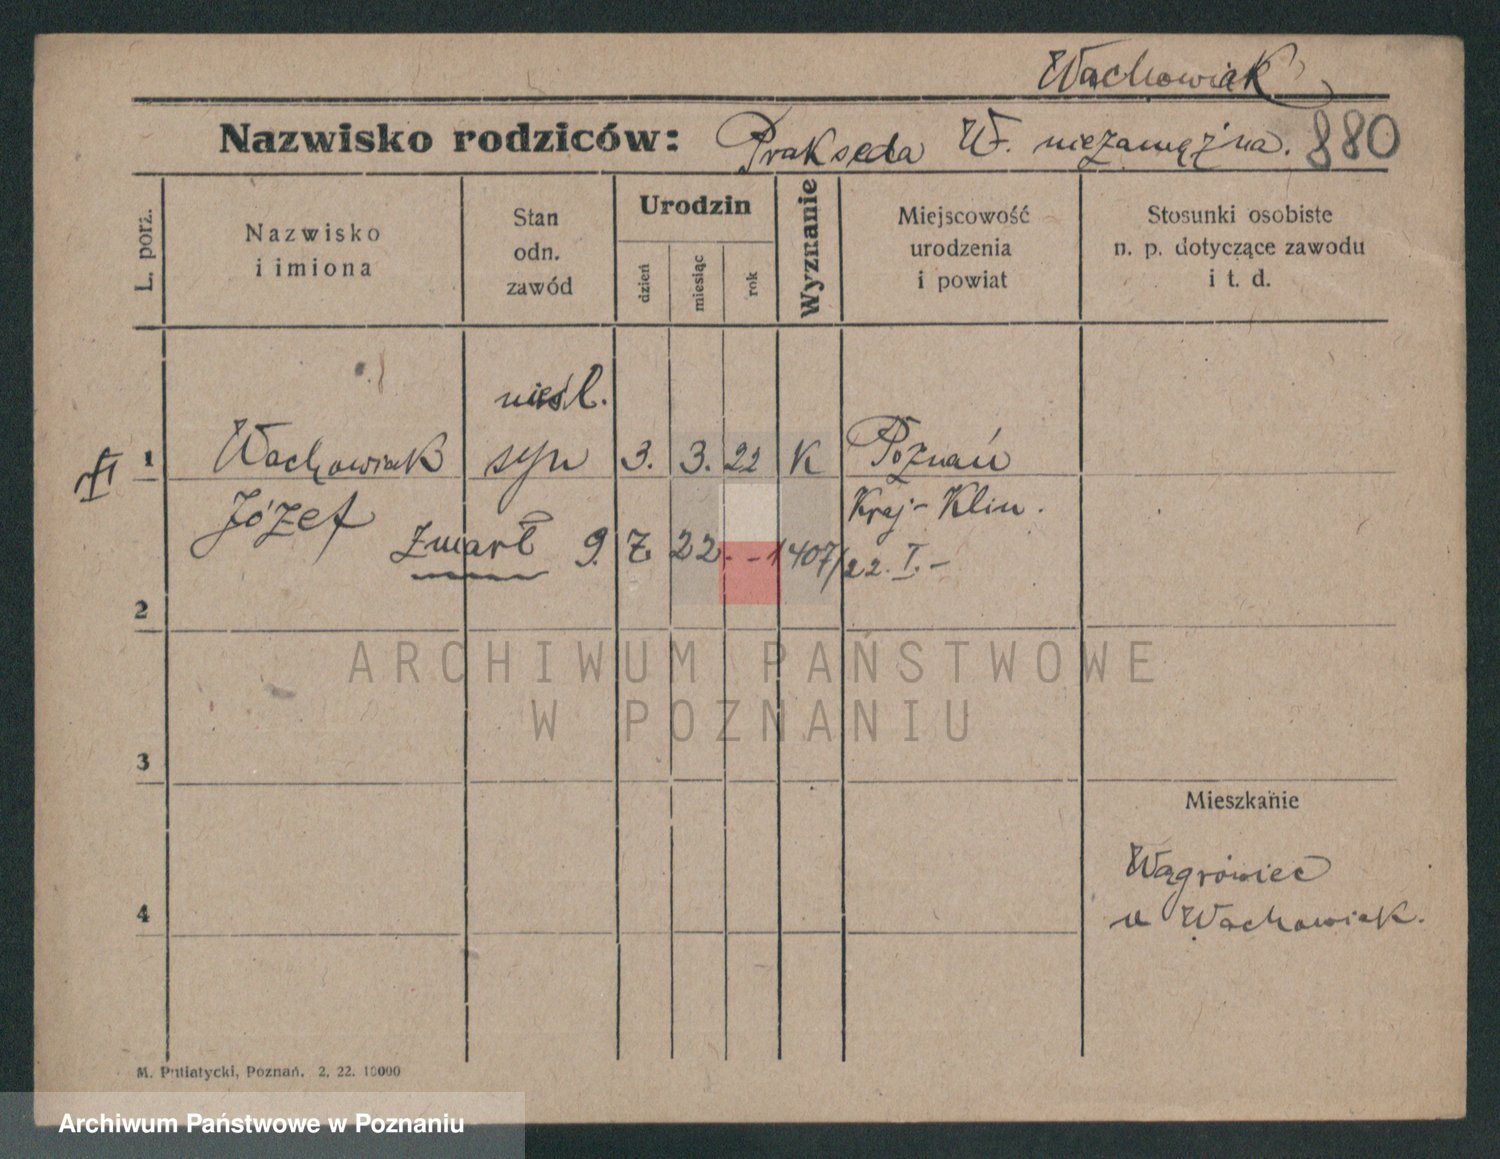 Wachowiak
Nazwisko rodziców: Prakseda W. niezamężna. 880
L. porz.
Nazwisko
i imiona
Stan
odn.
zawód
Urodzin
dzień
miesiąc
rok
Wyznanie
Miejscowość
urodzenia
i powiat
Stosunki osobiste
n. p. dotyczące zawodu
i t. d.
nieśl.
1 Wachowiak syn 3. 3. 22 K Poznań
Józef Kraj-Klin.
zmarł 9. 7. 22. - - 1407/22. I. -
2
ARCHIWUM PAŃSTWOWE
W POZNANIU
3
Mieszkanie
Wągrówiec
u Wachowiak.
4
M. Putiatycki, Poznań. 2. 22. 10000
Archiwum Państwowe w Poznaniu